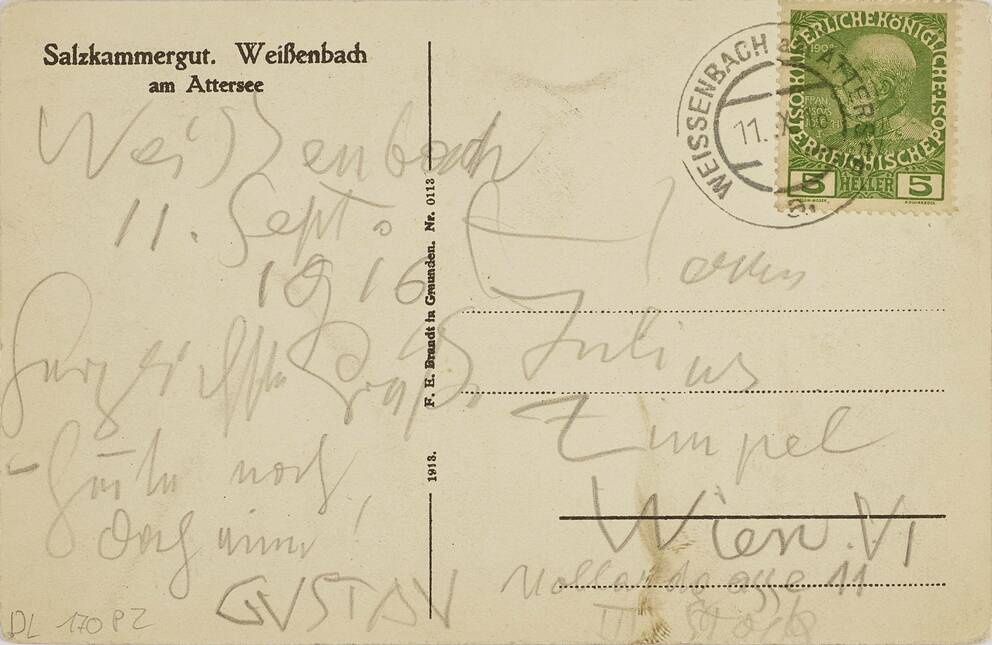 Salzkammergut. Weißenbach
am Attersee
Weißenbach
11. Sept.
1916
Herzlichste Grüße
heute noch
doch immer!
GUSTAV
DL 170 PZ
F. E. Brandt in Gmunden. Nr. 0113
1913.
WEISSENBACH a. ATTERSEE
11.
KAISERLICHE KÖNIGLICHE
ÖSTERREICHISCHE
1908
5 HELLER 5
Herrn
Julius
Zimpel
Wien. VI
Mollardgasse 11
III Stock